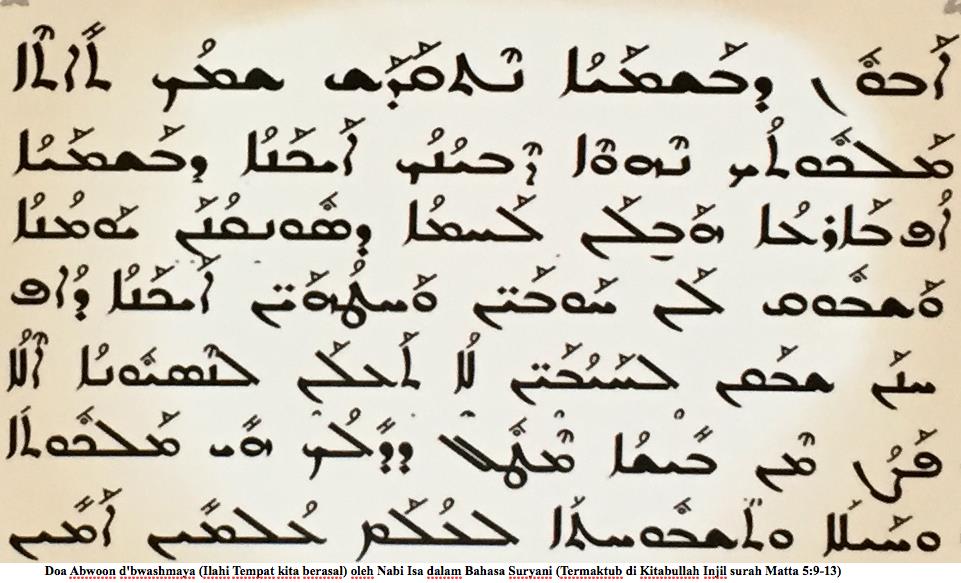 ܐܰܒܽܘܢ ܕܒܰܫܡܰܝܳܐ ܢܶܬܩܰܕܰܫ ܫܡܳܟ ܬܺܐܬܶܐ
ܡܰܠܟܽܘܬܳܟ ܢܶܗܘܶܐ ܨܶܒܝܳܢܳܟ ܐܰܝܟܰܢܳܐ ܕܒܰܫܡܰܝܳܐ
ܐܳܦ ܒܰܐܪܥܳܐ ܗܰܒܠܰܢ ܠܰܚܡܳܐ ܕܣܽܘܢܩܳܢܰܢ ܝܰܘܡܳܢܳܐ
ܘܰܫܒܽܘܩ ܠܰܢ ܚܰܘܒܰܝ̈ܢ ܘܰܚܛܳܗܰܝ̈ܢ ܐܰܝܟܰܢܳܐ ܕܳܐܦ
ܚܢܰܢ ܫܒܰܩܢ ܠܚܰܝܳܒܰܝ̈ܢ ܠܳܐ ܬܰܥܠܰܢ ܠܢܶܣܝܽܘܢܳܐ ܐܶܠܳܐ
ܦܰܨܳܢ ܡܶܢ ܒܺܝܫܳܐ ܡܶܛܽܠ ܕܕܺܝܠܳܟ ܗܺܝ ܡܰܠܟܽܘܬܳܐ
ܘܚܰܝܠܳܐ ܘܬܶܫܒܽܘܚܬܳܐ ܠܥܳܠܰܡ ܥܳܠܡܺܝܢ ܐܰܡܺܝܢ
Doa Abwoon d'bwashmaya (Ilahi Tempat kita berasal) oleh Nabi Isa dalam Bahasa Suryani (Termaktub di Kitabullah Injil surah Matta 5:9-13)